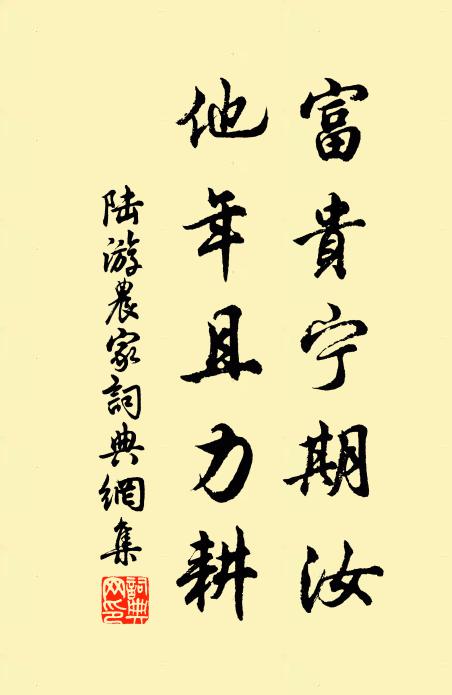 富貴宁期汝
他年且力耕
陆游農家詞典網集
詞典網印